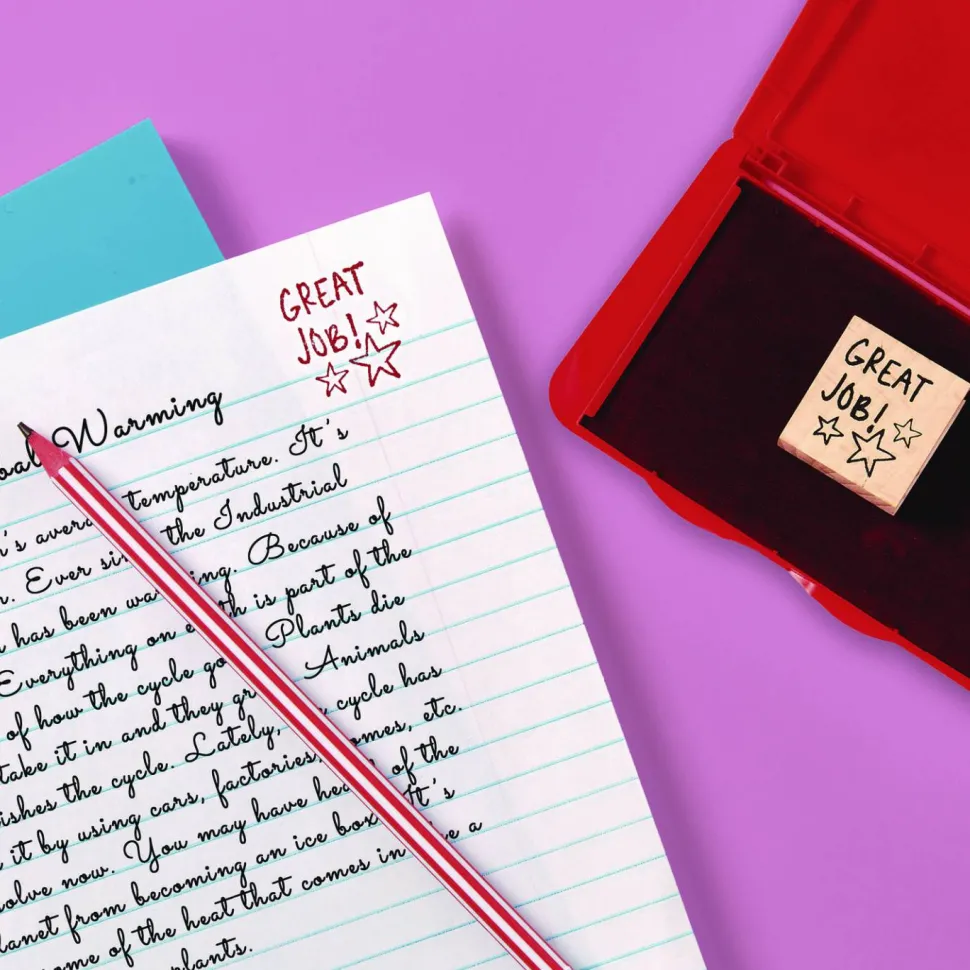 GREAT
JOB!
Warming
temperature. It's
Ever the Industrial
has been Because of
Everything on is part of the
of how the cycle Plants die
take it in and they Animals
the cycle. Lately, cycle has
it by using cars, factories, etc.
now. You may have of the
from becoming an ice box. It's
of the heat that comes in a
plants.
GREAT
JOB!